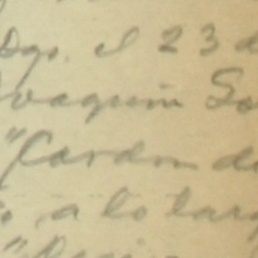 Dgo. a 23 d
Joaquin So
"Cardon de
o, a lo larg